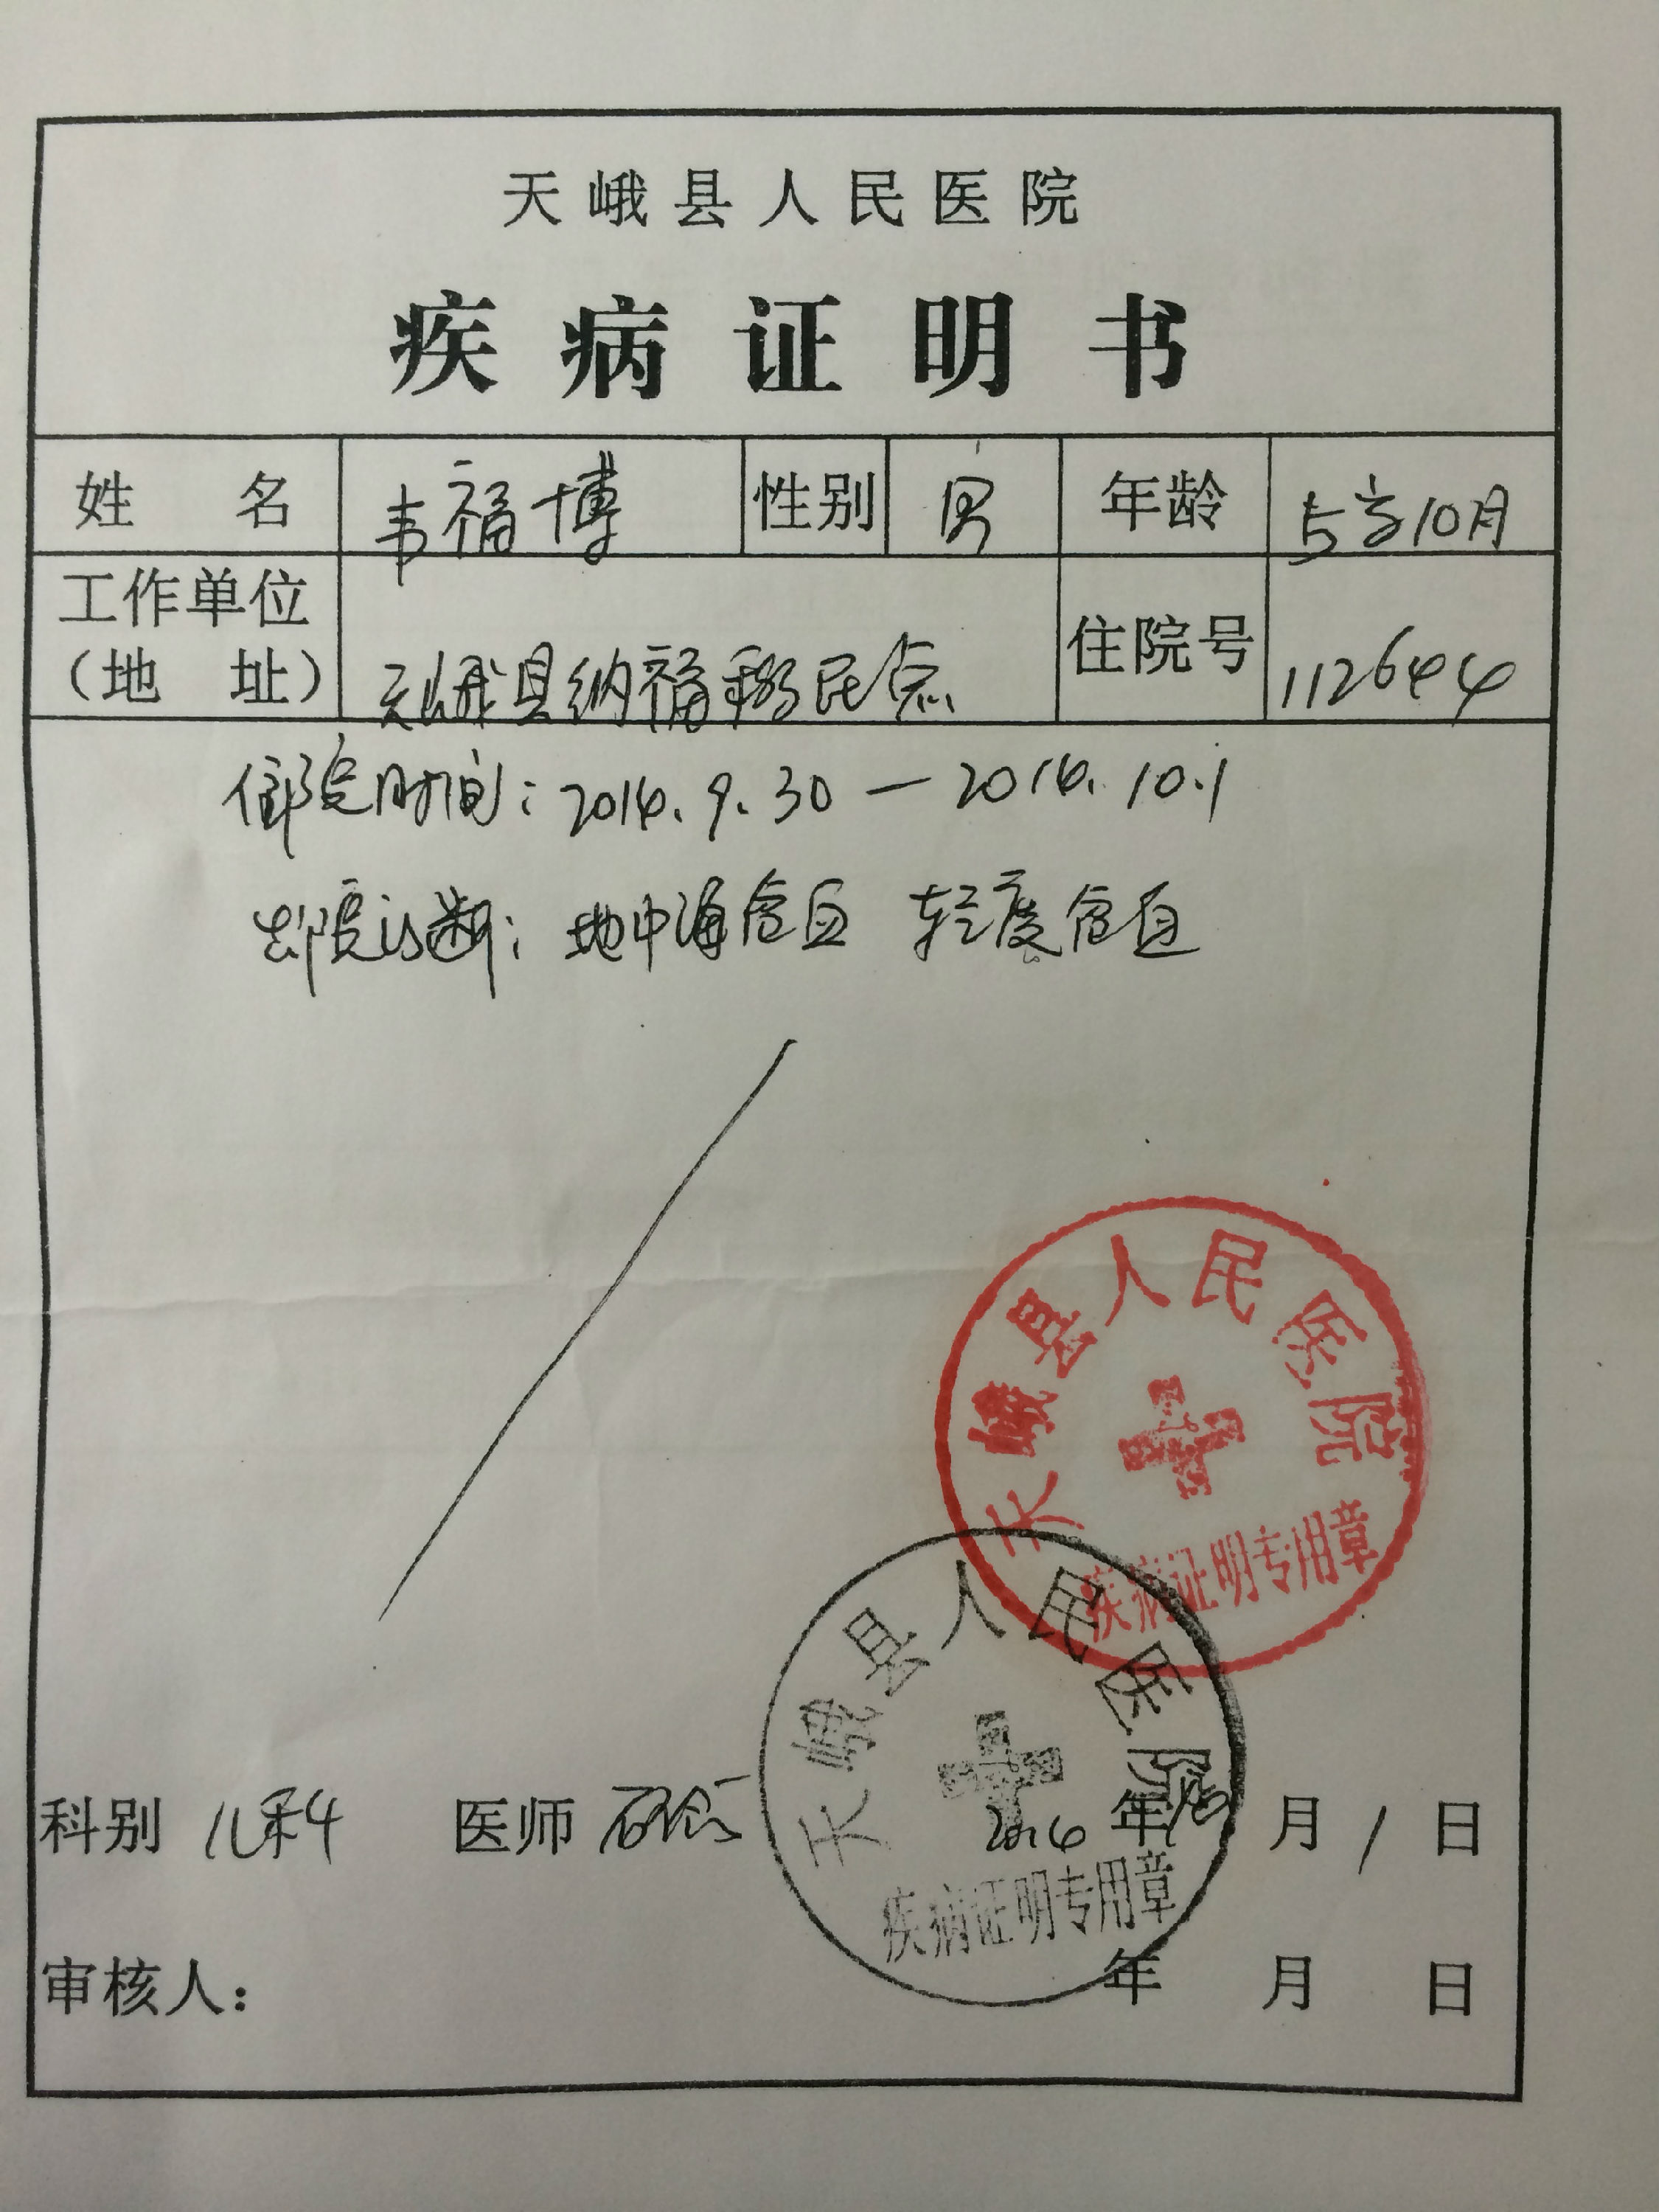 天峨县人民医院
疾病证明书
姓 名 韦福博 性别 男 年龄 5岁10月
工作单位（地 址） 天峨县纳福移民点 住院号 112644
住院时间：2016.9.30—2016.10.1
出院诊断：地中海贫血 轻度贫血
天峨县人民医院
疾病证明专用章
天峨县人民医院
疾病证明专用章
科别 儿科 医师 2016年10月1日
审核人： 年 月 日